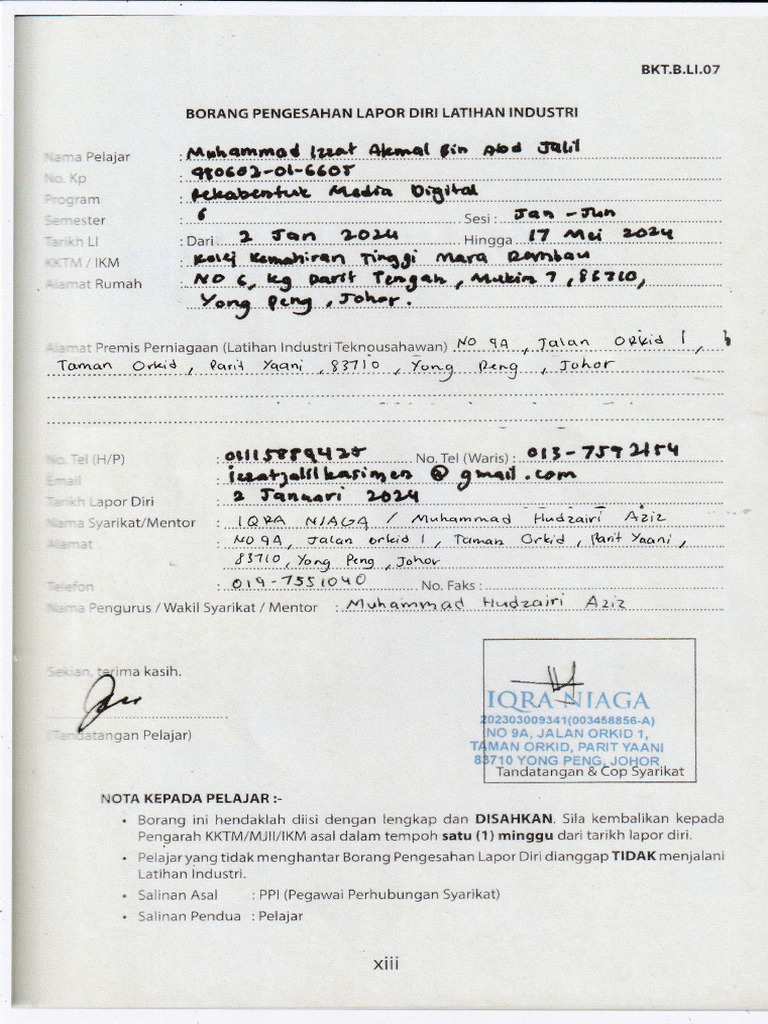 BKT.B.LI.07
BORANG PENGESAHAN LAPOR DIRI LATIHAN INDUSTRI
Nama Pelajar : Muhammad Izzat Akmal Bin Abd Jalil
No. Kp : 980602-01-6605
Program : Rekabentuk Media Digital
Semester : 6 Sesi : Jan - Jun
Tarikh LI : Dari 2 Jan 2024 Hingga 17 Mei 2024
KKTM / IKM : Kolej Kemahiran Tinggi Mara Rembau
Alamat Rumah : NO 6, Kg Parit Tengah, Mukim 7, 83710,
Yong Peng, Johor.
Alamat Premis Perniagaan (Latihan Industri Teknousahawan) NO 9A, Jalan Orkid 1,
Taman Orkid, Parit Yaani, 83710, Yong Peng, Johor
No. Tel (H/P) : 01115889425 No. Tel (Waris) : 013-7592154
Email : izzatjalilkasimen @ gmail.com
Tarikh Lapor Diri : 2 Januari 2024
Nama Syarikat/Mentor : IQRA NIAGA / Muhammad Hudzairi Aziz
Alamat : NO 9A, Jalan orkid 1, Taman Orkid, Parit Yaani,
83710, Yong Peng, Johor
Telefon : 019-7551040 No. Faks :
Nama Pengurus / Wakil Syarikat / Mentor : Muhammad Hudzairi Aziz
Sekian, terima kasih.
(Tandatangan Pelajar)
IQRA NIAGA
202303009341(003458856-A)
NO 9A, JALAN ORKID 1,
TAMAN ORKID, PARIT YAANI
83710 YONG PENG, JOHOR
Tandatangan & Cop Syarikat
NOTA KEPADA PELAJAR :-
• Borang ini hendaklah diisi dengan lengkap dan DISAHKAN. Sila kembalikan kepada
Pengarah KKTM/MJII/IKM asal dalam tempoh satu (1) minggu dari tarikh lapor diri.
• Pelajar yang tidak menghantar Borang Pengesahan Lapor Diri dianggap TIDAK menjalani
Latihan Industri.
• Salinan Asal : PPI (Pegawai Perhubungan Syarikat)
• Salinan Pendua : Pelajar
xiii